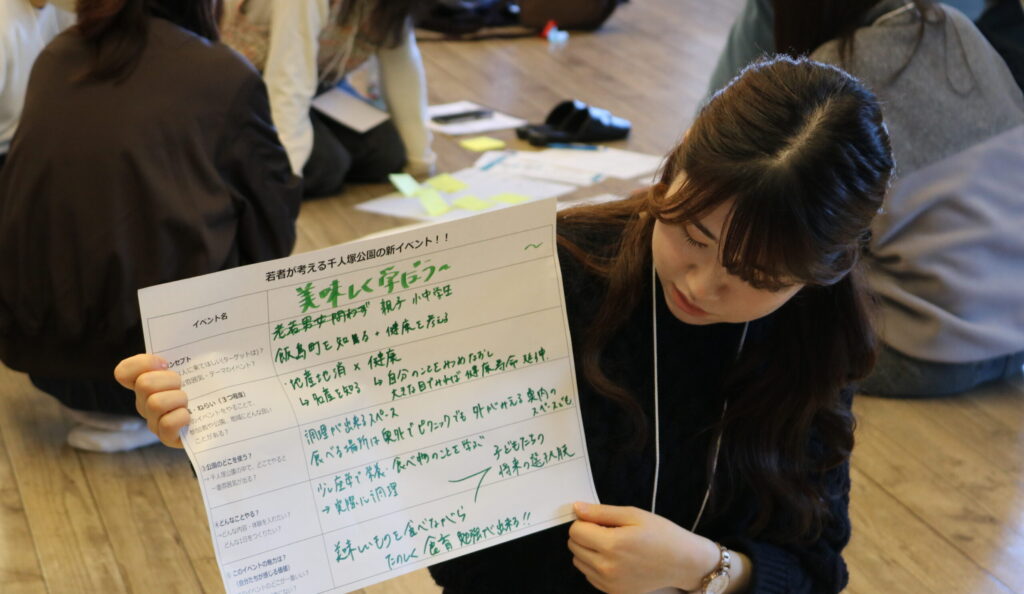 若者が考える千人塚公園の新イベント！！
イベント名
美味しく学ぼう〜
〜
老若男女問わず 親子 小中学生
飯島町を知る + 健康を考える
コンセプト
人に来てほしい(ターゲットは)？
雰囲気・テーマのイベント？
・地産地消 × 健康
↳ 名産を知る ↳ 自分のことを見つめなおし
健康寿命 延伸
ねらい（3つ程度）
のイベントをやることで、
ことがある？
調理が出来るスペース
食べる場所は東外でピクニックでも 外が見える 室内の
スペースでも
3.公園のどこを使う？
→千人塚公園の中で、どこでやると
一番雰囲気が出る？
少し座学で 栄養・食べ物のことを学ぶ
→ 実際に調理
子どもたちの
将来の選択肢
4.どんなことやる？
→どんな内容・体験を入れたい？
どんな1日をつくりたい？
美味しいものを食べながら
たのしく 食育 勉強が出来る!!
このイベントの魅力は？
(自分たちが感じる価値)